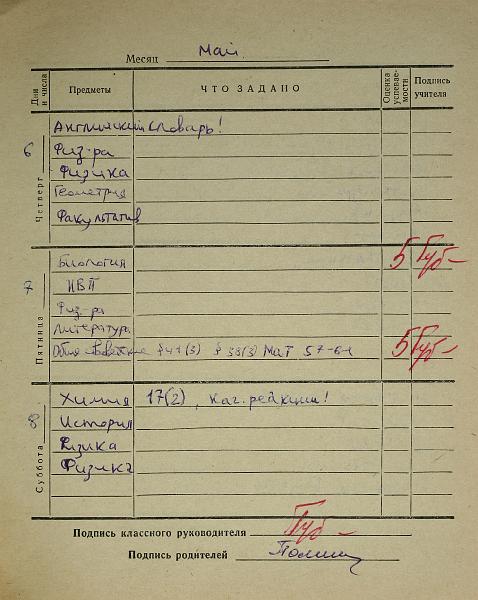 Месяц Май
Дни и числа Предметы ЧТО ЗАДАНО Оценка успевае-мости Подпись учителя
Четверг 6
Английский словарь!
Физ-ра
Физика
Геометрия
Факультатив
Пятница 7
Биология 5 Губ-
НВП
Физ-ра
Литература
§41(3) § 38(3) Мат 57-61 5 Губ-
Суббота 8
Химия 17(2), реакции!
История
Физика
Физика
Подпись классного руководителя Губ-
Подпись родителей